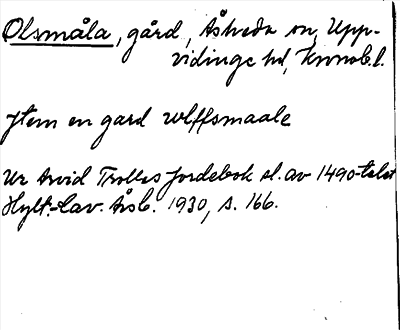 Olsmåla, gård, Åsheda sn, Upp-
vidinge hd, Kronob.l.
Jtem en gard wlffsmaale
Ur Arvid Trolles Jordebok sl. av 1490-talet
Hylt.-Cav. Årsb. 1930, s. 166.